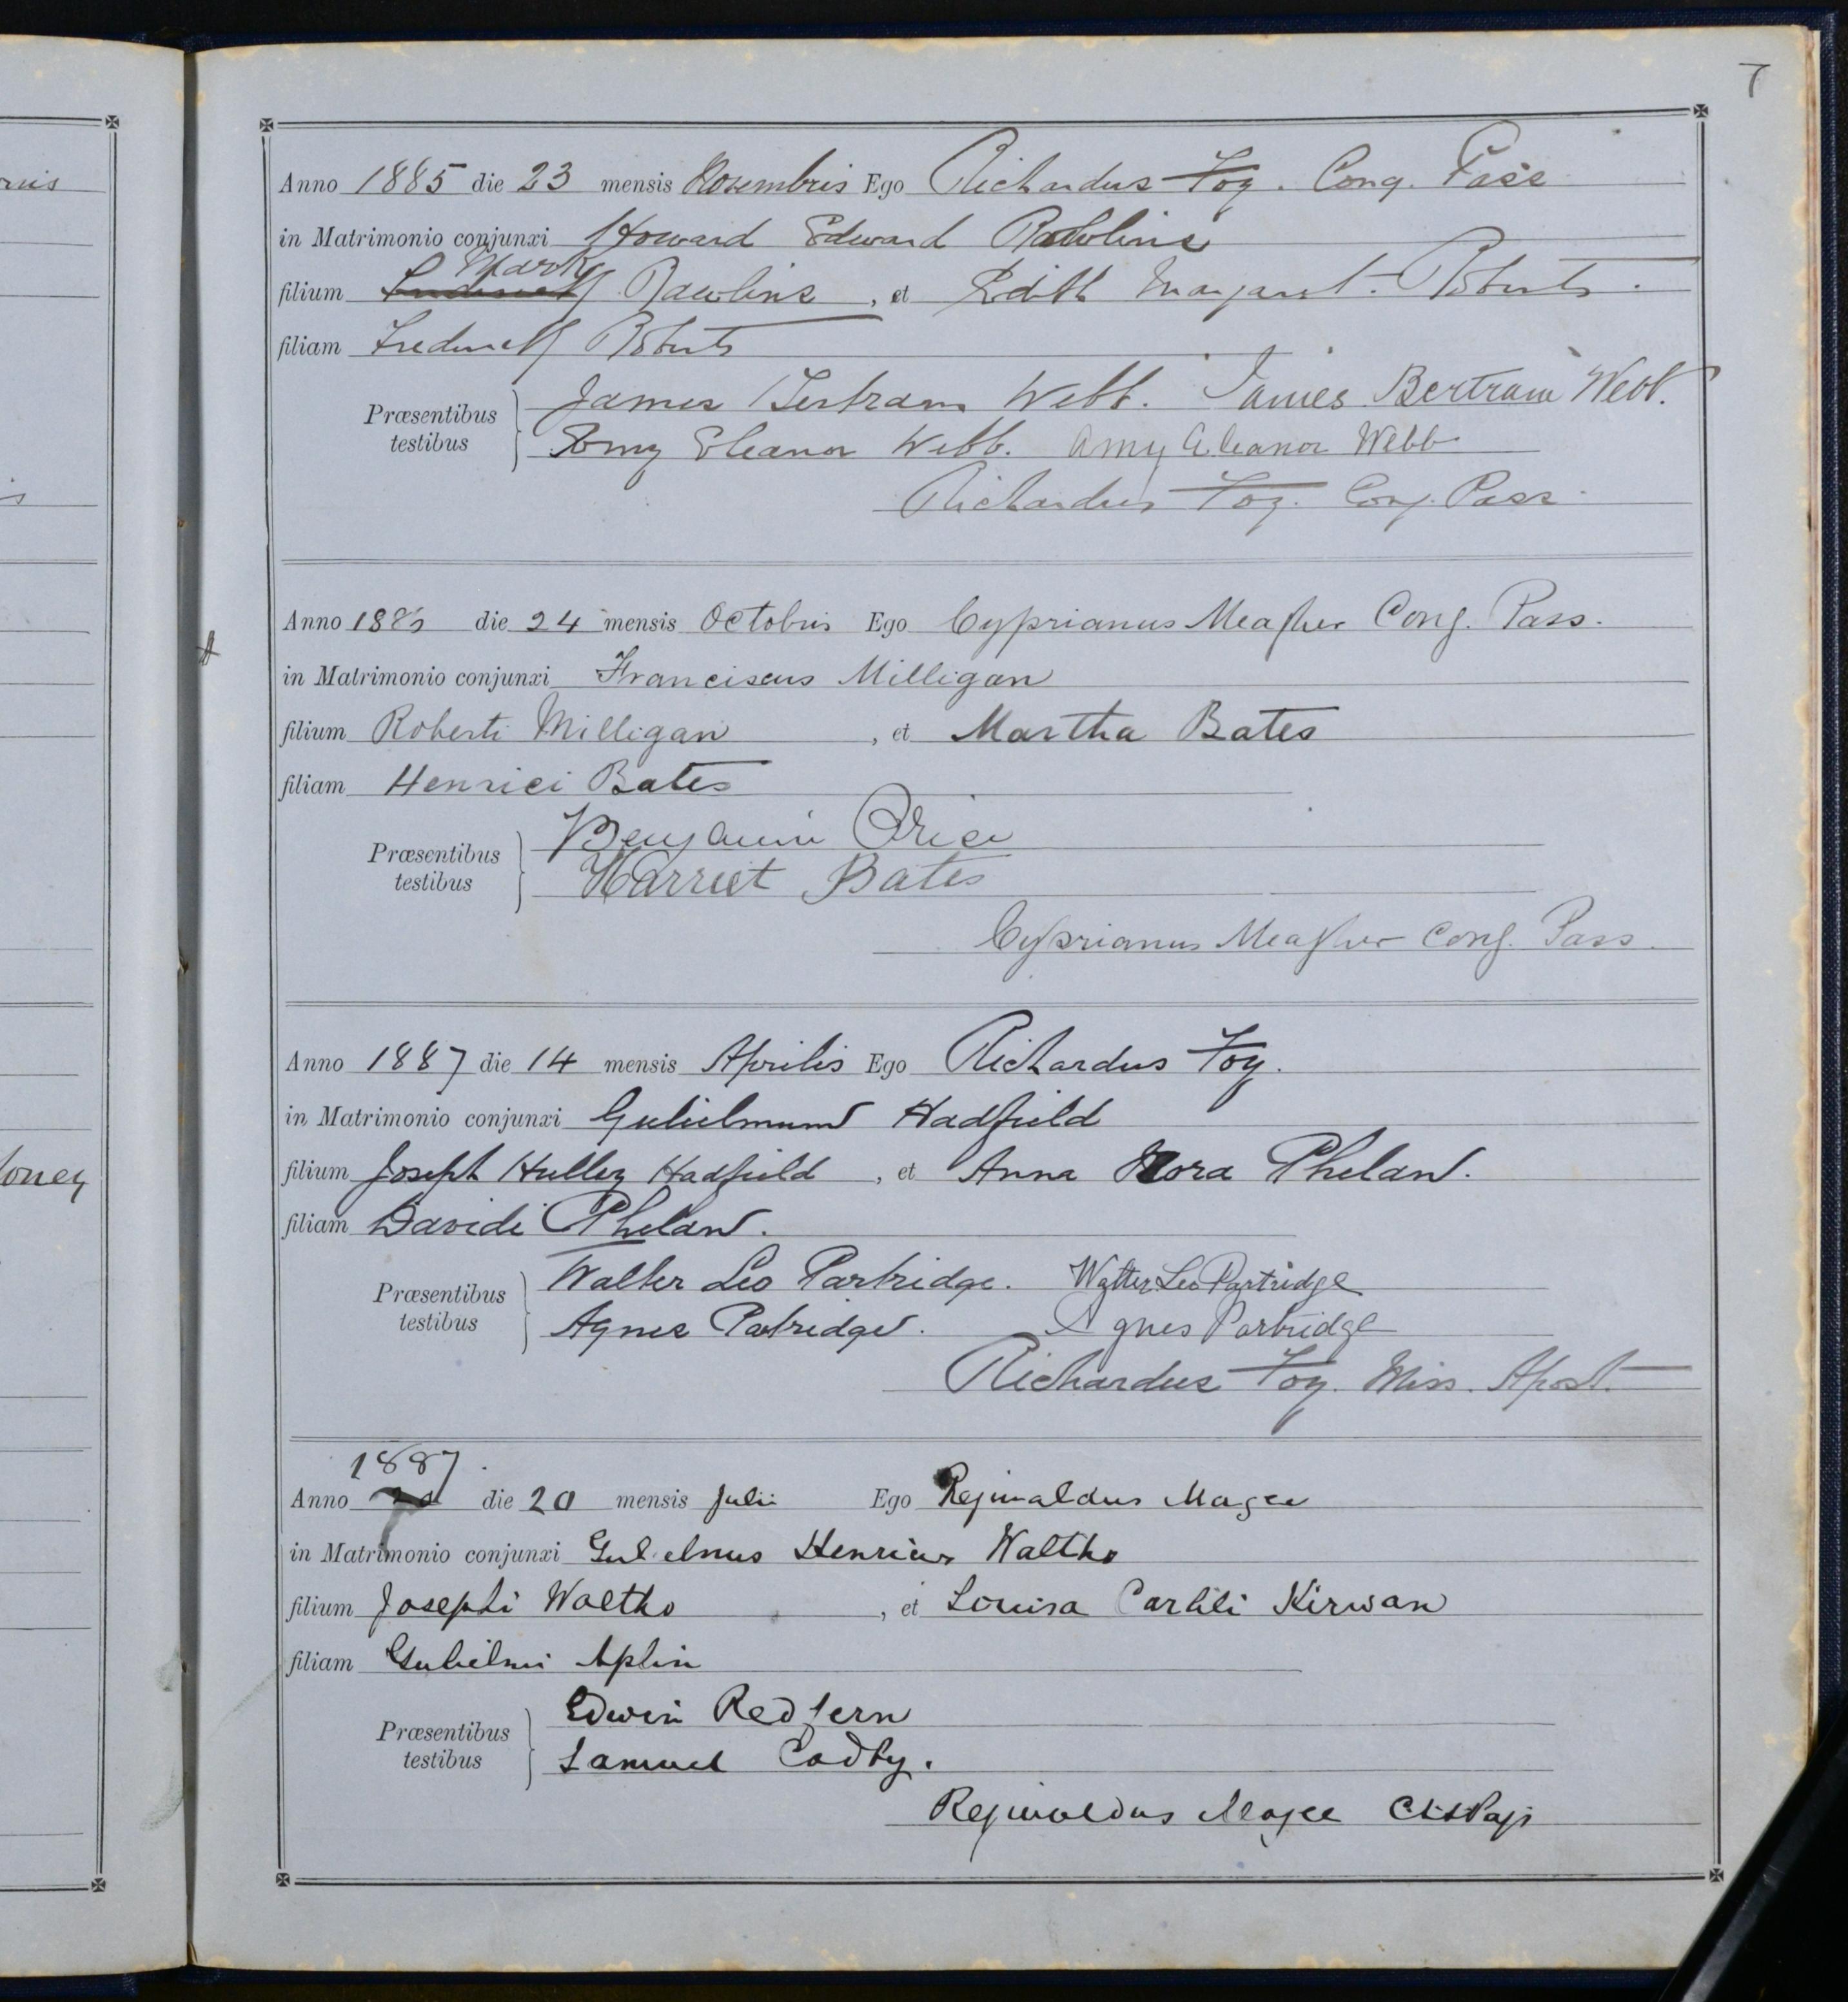 7
Anno 1885 die 23 mensis Novembris Ego Richardus Foy. Cong. Pass
in Matrimonio conjunxi Howard Edward Rawlins
Mark
filium Frederick Rawlins, et Edith Margaret Roberts.
filiam Frederick Roberts
Præsentibus testibus
James Bertram Webb. James Bertram Webb.
Amy Eleanor Webb. Amy Eleanor Webb
Richardus Foy. Cong. Pass.
Anno 188 die 24 mensis Octobris Ego Cyprianus Meagher Cong. Pass.
in Matrimonio conjunxi Franciscus Milligan
filium Roberti Milligan, et Martha Bates
filiam Henrici Bates
Præsentibus testibus
Benjamin Price
Harriet Bates
Cyprianus Meagher Cong. Pass.
Anno 1887 die 14 mensis Aprilis Ego Richardus Foy.
in Matrimonio conjunxi Gulielmum Hadfield
filium Joseph Hulley Hadfield, et Anna Nora Phelan.
filiam Davidi Phelan.
Præsentibus testibus
Walter Leo Partridge. Walter Leo Partridge
Agnes Patridge. Agnes Partridge
Richardus Foy. Miss. Apost.
1887.
Anno die 20 mensis Julii Ego Reginaldus Magee
in Matrimonio conjunxi Gulielmus Henricus Waltho
filium Josephi Waltho, et Louisa Kirwan
filiam Gulielmi Aplin
Præsentibus testibus
Edwin Redfern
Samuel Cadby.
Reginaldus Magee